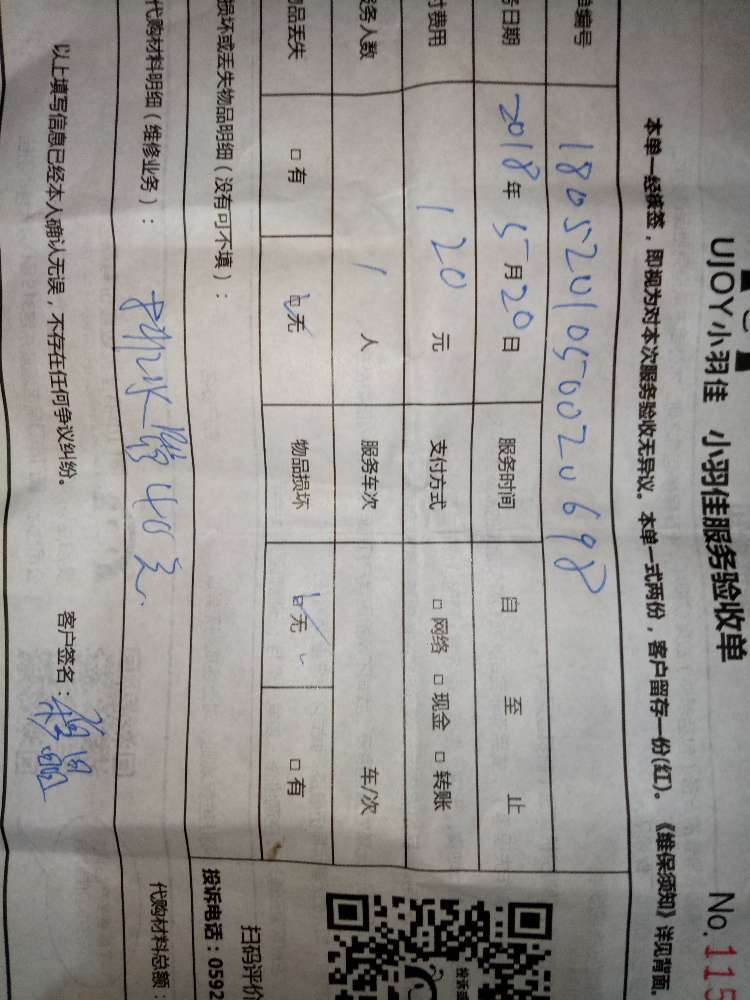 UJOY小羽佳 小羽佳服务验收单
No.115
本单一经接签，即视为对本次服务验收无异议。本单一式两份，客户留存一份(红)。《维保须知》详见背面。
单编号 1805201050020698
务日期 2018年5月20日 服务时间 自 至 止
付费用 120元 支付方式 □网络 □现金 □转账
服务人数 1人 服务车次 车/次
物品丢失 □有 ☑无 物品损坏 ☑无 □有
损坏或丢失物品明细（没有可不填）：
扫码评价
投诉电话：0592
代购材料明细（维修业务）： 排水管40元
代购材料总额：
以上填写信息已经本人确认无误，不存在任何争议纠纷。 客户签名：